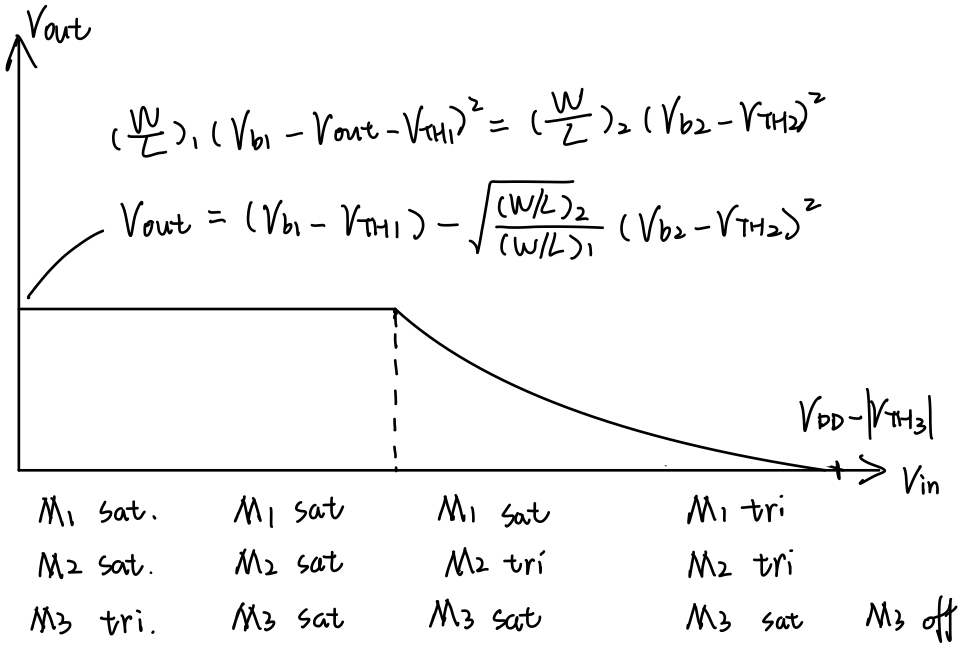 Vout
(W/L)₁ (Vb1 - Vout - VTH1)² = (W/L)₂ (Vb2 - VTH2)²
Vout = (Vb1 - VTH1) - √((W/L)₂/(W/L)₁) (Vb2 - VTH2)²
VDD - |VTH3|
Vin
M1 sat. M1 sat M1 sat M1 tri
M2 sat. M2 sat M2 tri M2 tri
M3 tri. M3 sat M3 sat M3 sat M3 off